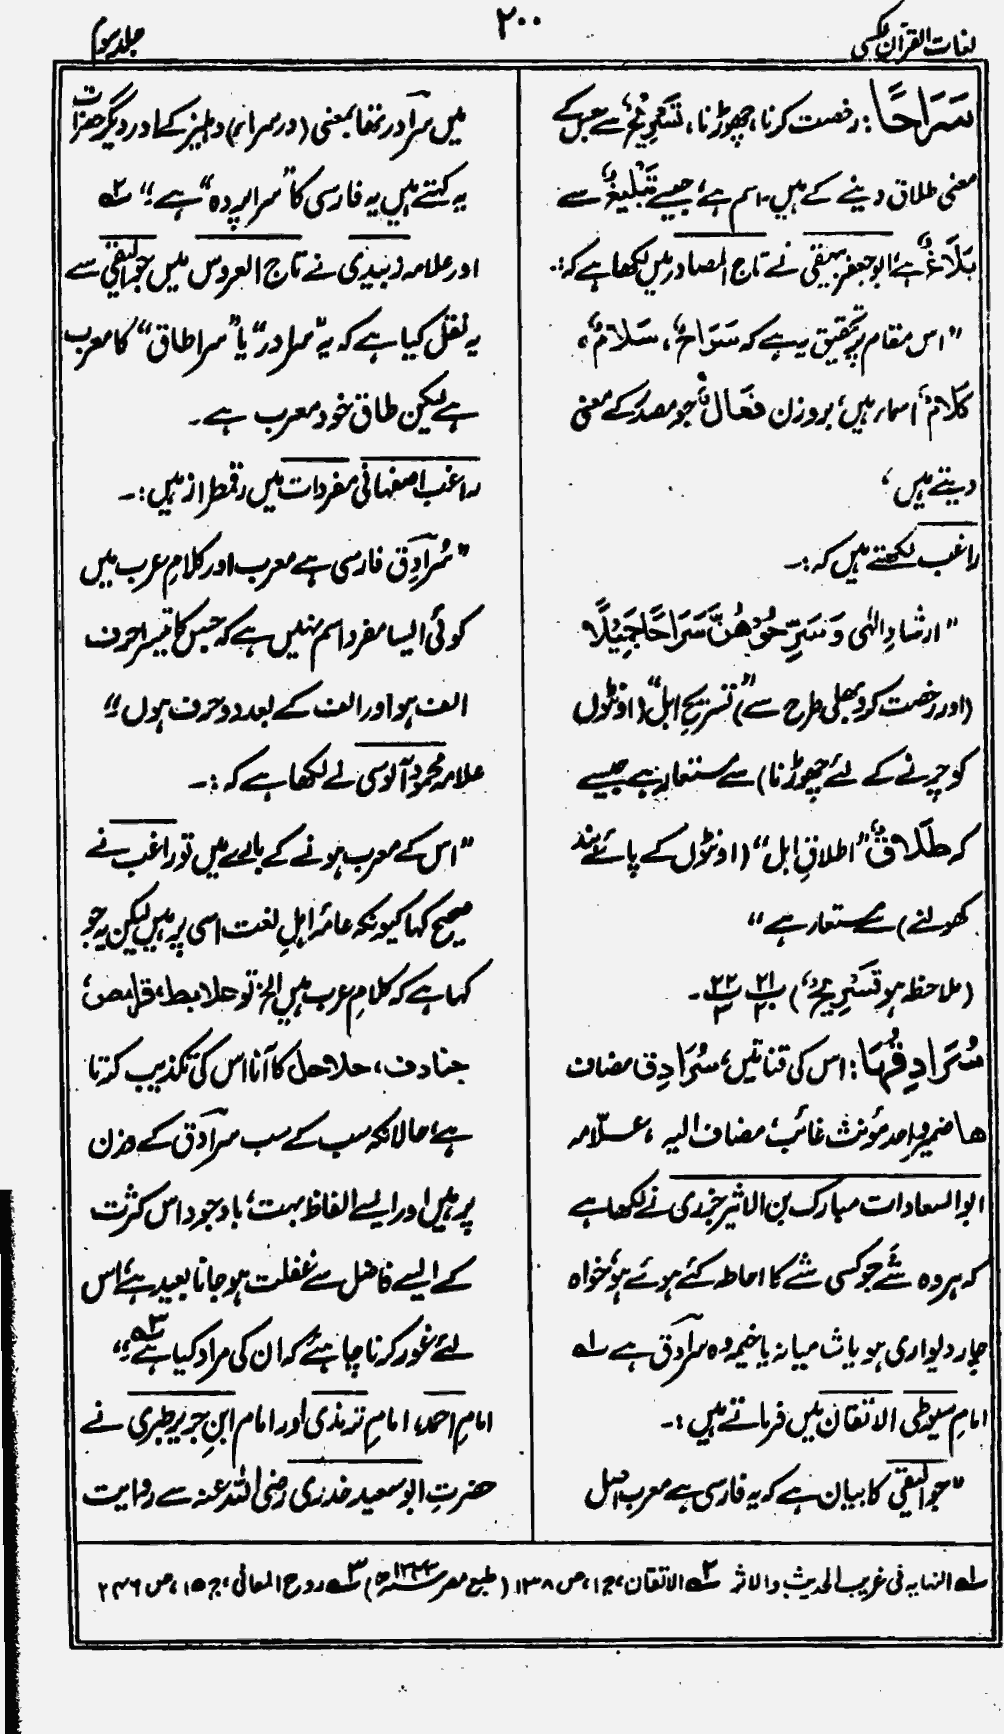 لغات القرآن عکسی
۲۰۰
جلد سوم
سَرَاحًا: رخصت کرنا، چھوڑنا، تَسْرِیْحٌ سے جس کے
معنی طلاق دینے کے ہیں۔ اسم ہے، جیسے تَبْلِیْغٌ سے
بَلَاغٌ ہے، ابو جعفر بیہقی نے تاج المصادر میں لکھا ہے کہ:۔
”اس مقام پر تحقیق یہ ہے کہ سَرَاحٌ، سَلَامٌ،
کَلَامٌ اسماء ہیں، بروزن فَعَالٌ، جو مصدر کے معنی
دیتے ہیں،
راغب لکھتے ہیں کہ:۔
”ارشادِ الٰہی وَسَرِّحُوْهُنَّ سَرَاحًا جَمِیْلًا
(اور رخصت کرو بھلی طرح سے) ”تسریحِ ابل“ (اونٹوں
کو چرنے کے لئے چھوڑنا) سے مستعار ہے جیسے
کہ طَلَاقٌ ”اطلاقِ ابل“ (اونٹوں کے پائے بند
کھولنے) سے مستعار ہے“
(ملاحظہ ہو تَسْرِیْحٌ) ۲۱/۲۰ ۲۲/۳۔
سُرَادِقُهَا: اس کی قناتیں، سُرَادِق مضاف
ها ضمیر واحد مؤنث غائب، مضاف الیہ، علّامہ
ابو السعادات مبارک بن الاثیر جزری نے لکھا ہے
کہ ہر وہ شے جو کسی شے کا احاطہ کئے ہوئے ہو، خواہ
چار دیواری ہو یا شامیانہ یا خیمہ وہ سرادق ہے لہ
امام سیوطی الاتقان میں فرماتے ہیں:۔
”جوالیقی کا بیان ہے کہ یہ فارسی ہے معرب، اصل
میں سرادر تھا بمعنی (درسرا) دہلیز کے اور دیگر حضرات
یہ کہتے ہیں یہ فارسی کا ”سراپردہ“ ہے،“ ۲ہ
اور علامہ زبیدی نے تاج العروس میں جوالیقی سے
یہ نقل کیا ہے کہ یہ ”سرادر“ یا ”سراطاق“ کا معرب
ہے لیکن طاق خود معرب ہے۔
راغب اصفہانی مفردات میں رقمطراز ہیں:۔
”سُرادِق فارسی ہے معرب اور کلامِ عرب میں
کوئی ایسا مفرد اسم نہیں ہے کہ جس کا تیسرا حرف
الف ہو اور الف کے بعد دو حرف ہوں،“
علامہ محمود آلوسی نے لکھا ہے کہ:۔
”اس کے معرب ہونے کے بارے میں تو راغب نے
صحیح کہا کیونکہ عامۂ اہلِ لغت اسی پر ہیں لیکن یہ جو
کہا ہے کہ کلامِ عرب میں الخ تو حلابط، قرامص،
جنادف، حلاحل کا آنا اس کی تکذیب کرتا
ہے، حالانکہ سب کے سب سرادق کے وزن
پر ہیں اور ایسے الفاظ بہت، باوجود اس کثرت
کے ایسے فاضل سے غفلت ہو جانا بعید ہے، اس
لئے غور کرنا چاہئے کہ ان کی مراد کیا ہے،“ ۳ہ
امام احمد، امام ترمذی اور امام ابن جریر طبری نے
حضرت ابو سعید خدری رضی اللہ عنہ سے روایت
لہ النہایہ فی غریب الحدیث والاثر ۲ہ الاتقان، ج ۱، ص ۱۳۸ (طبع مصر ۱۳۴۳ھ) ۳ہ روح المعانی، ج ۱۵، ص ۲۴۶